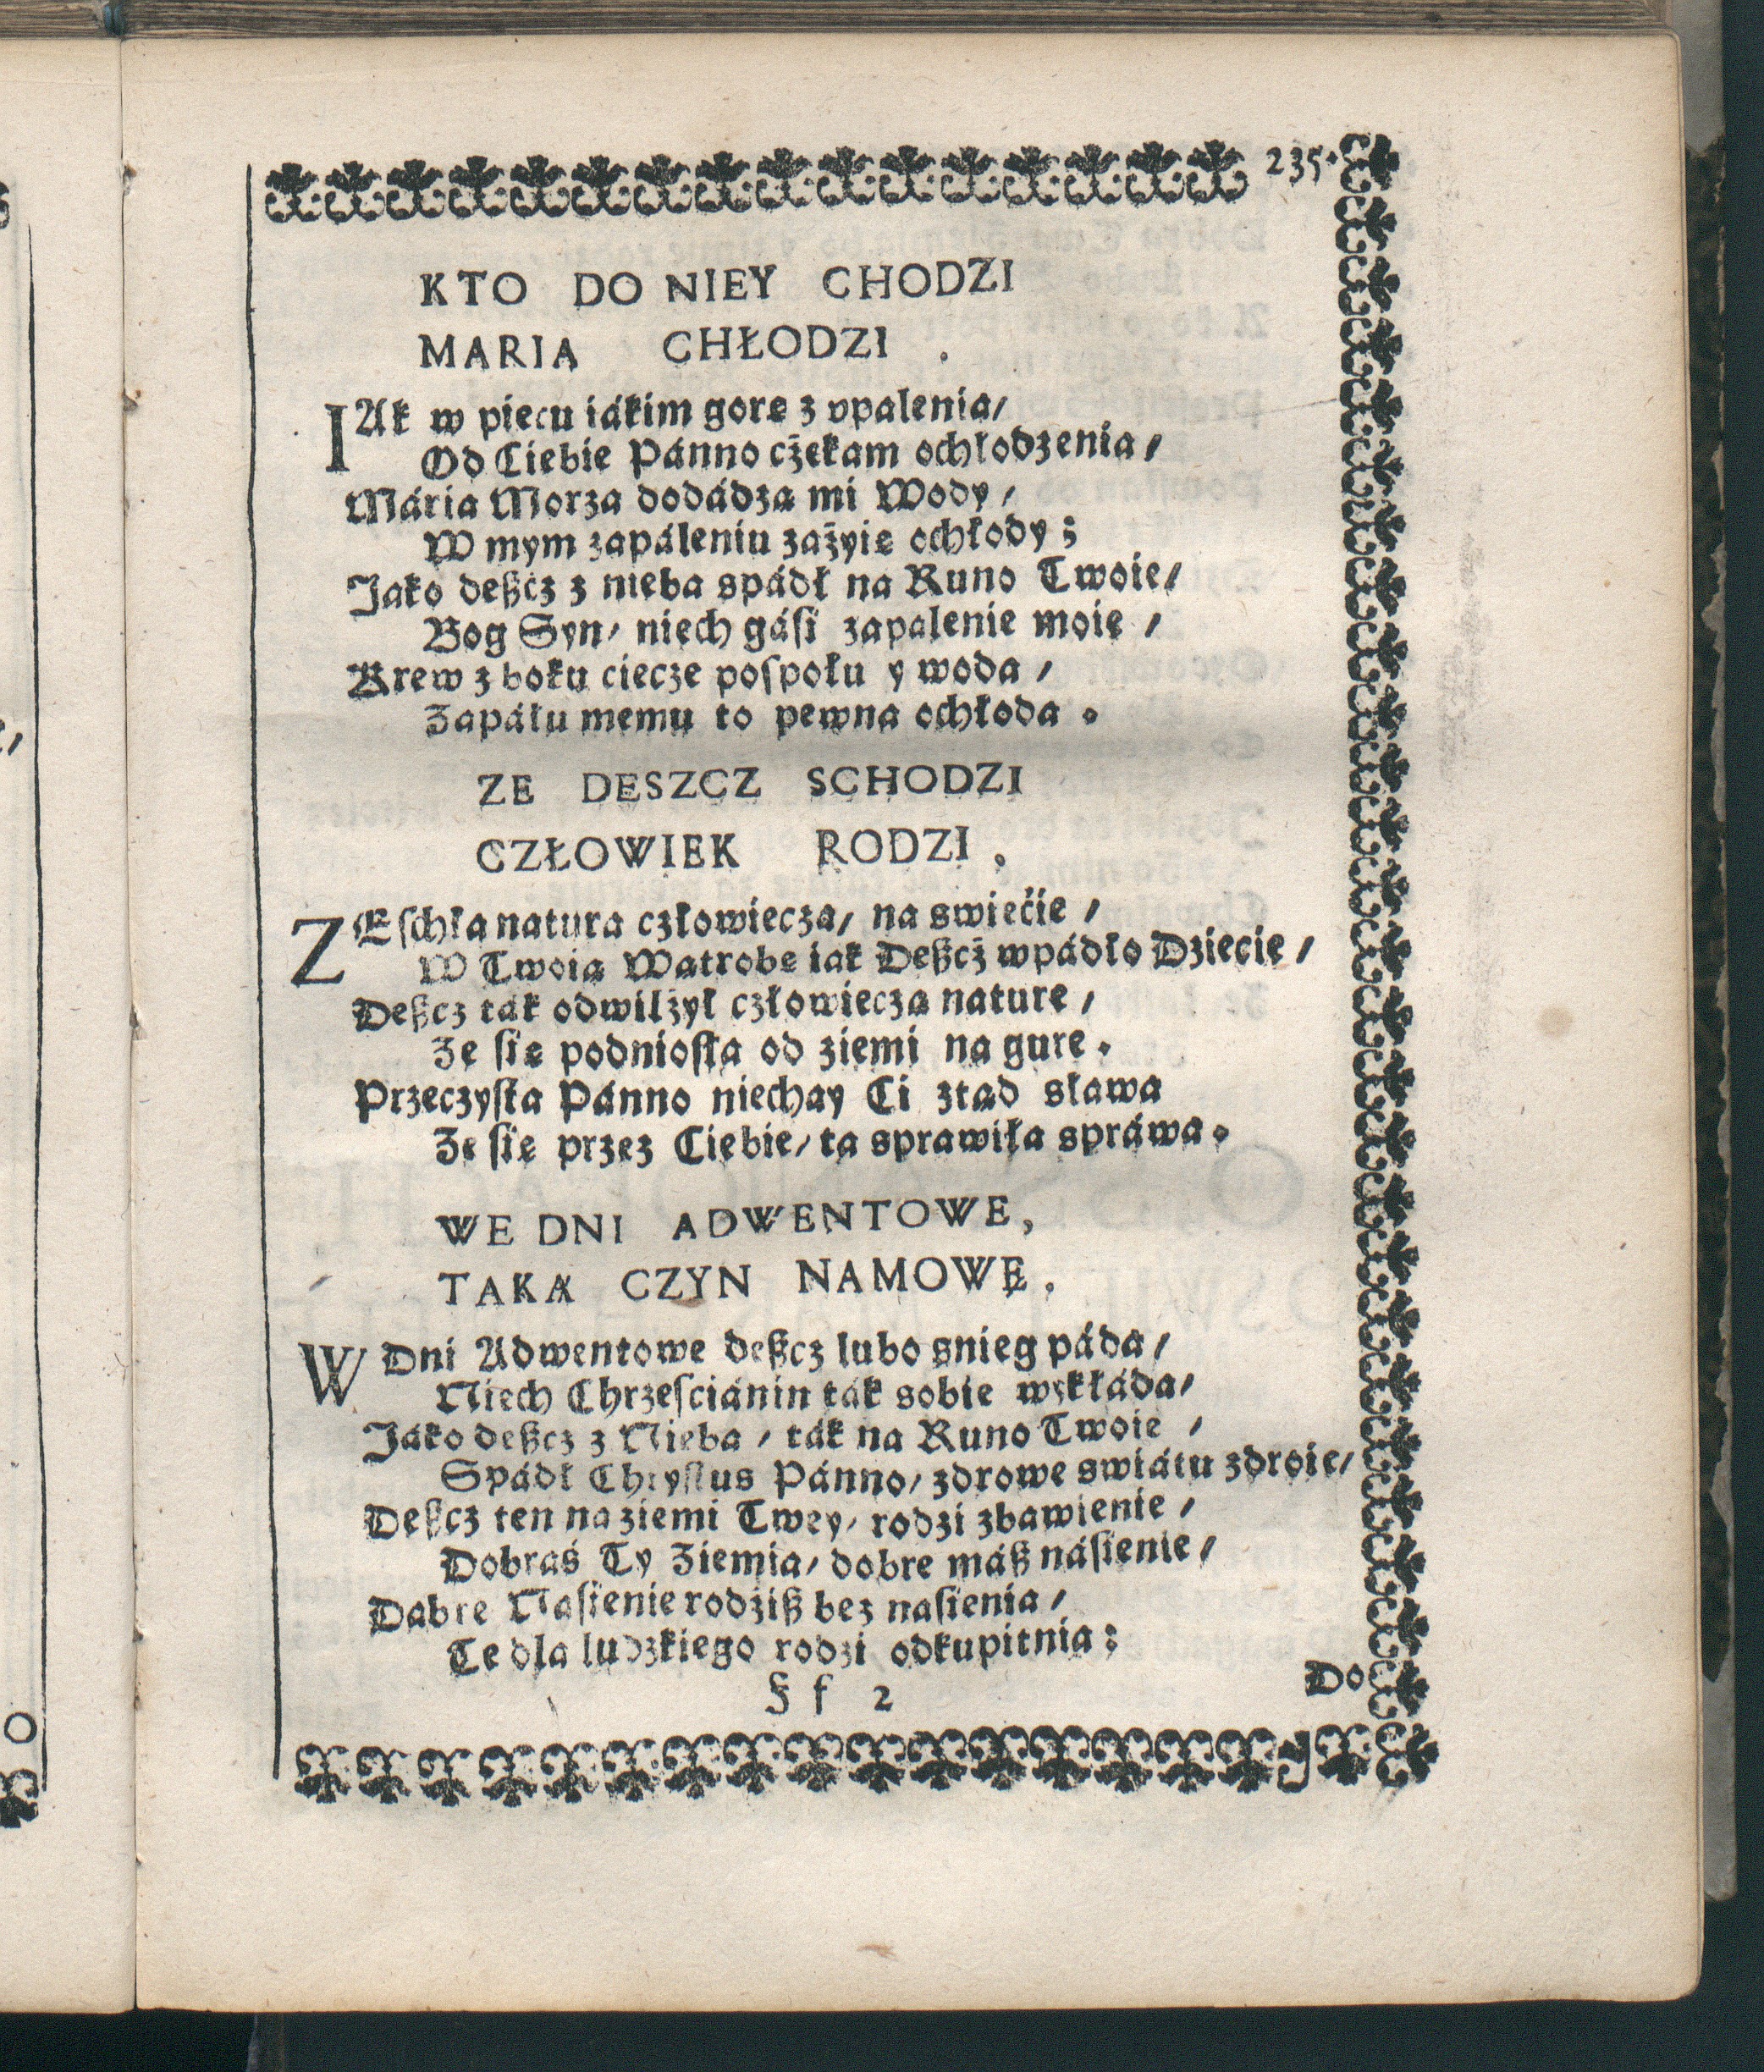 235.
KTO DO NIEY CHODZI
MARIA CHŁODZI.
IAk w piecu iákim gorę z vpalenia/
Od Ciebie Pánno cżekam ochłodzenia/
Mária Morza dodádzą mi Wody/
W mym zapáleniu zażyię ochłody;
Jako deßcż z nieba spádł na Runo Twoie/
Bog Syn/ niech gáśi zapalenie moie/
Krew z boku ciecze pospołu y woda/
Zapáłu memu to pewna ochłoda.
ZE DESZCZ SCHODZI
CZŁOWIEK RODZI.
ZEschła natura człowiecza/ na swiećie/
W Twoią Wątrobę iak Deßcż wpádło Dziecię/
Deßcz ták odwilżył człowieczą naturę/
Ze się podniosła od ziemi na gurę.
Przeczysta Pánno niechay Ci ztąd sława
Ze się przez Ciebie/ ta sprawiła spráwa.
WE DNI ADWENTOWE,
TAKĄ CZYN NAMOWĘ.
W Dni Adwentowe deßcz lubo snieg páda/
Niech Chrzesciánin ták sobie wykłáda/
Jáko deßcz z Nieba/ ták na Runo Twoie/
Spádł Chrystus Pánno/ zdrowe swiátu zdroie/
Deßcz ten na ziemi Twey/ rodzi zbawienie/
Dobraś Ty Ziemia/ dobre máß násienie/
Dabre Nasienie rodżiß bez nasienia/
Te dla ludzkiego rodzi odkupitnia;
F f 2
Do